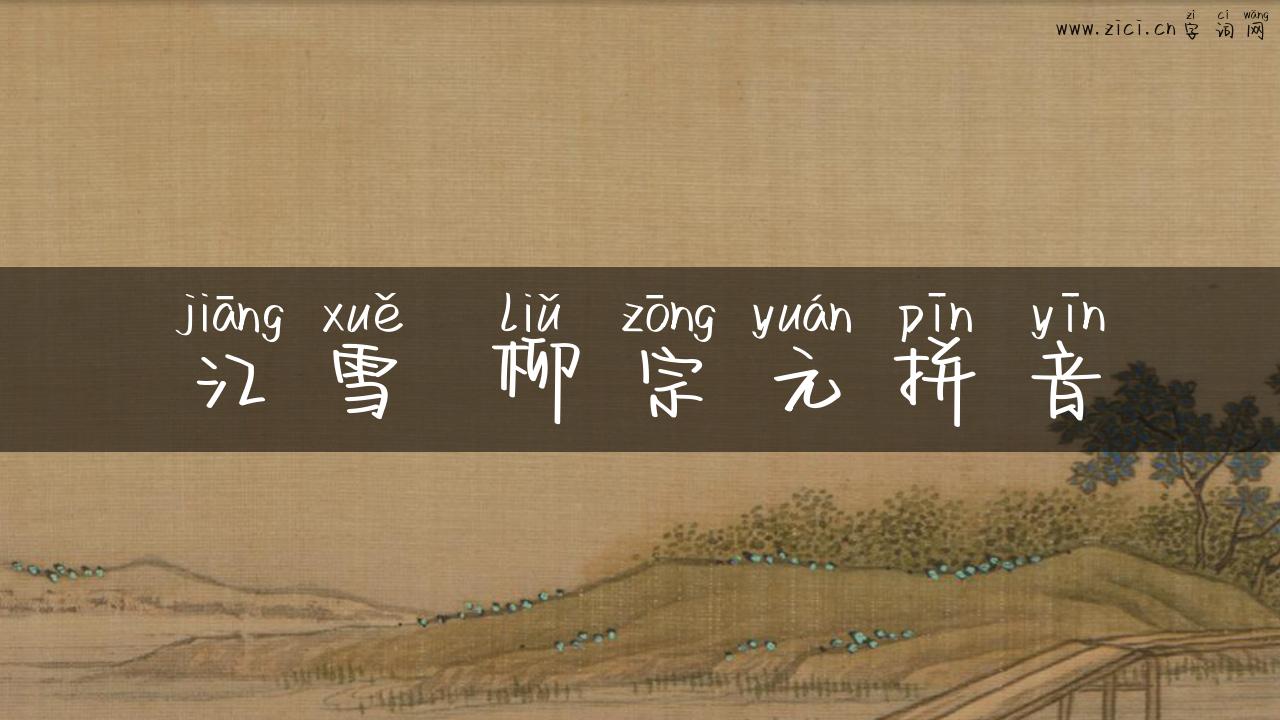 zì cí wǎng
www.zici.cn字词网
jiāng xuě liǔ zōng yuán pīn yīn
江雪 柳宗元拼音